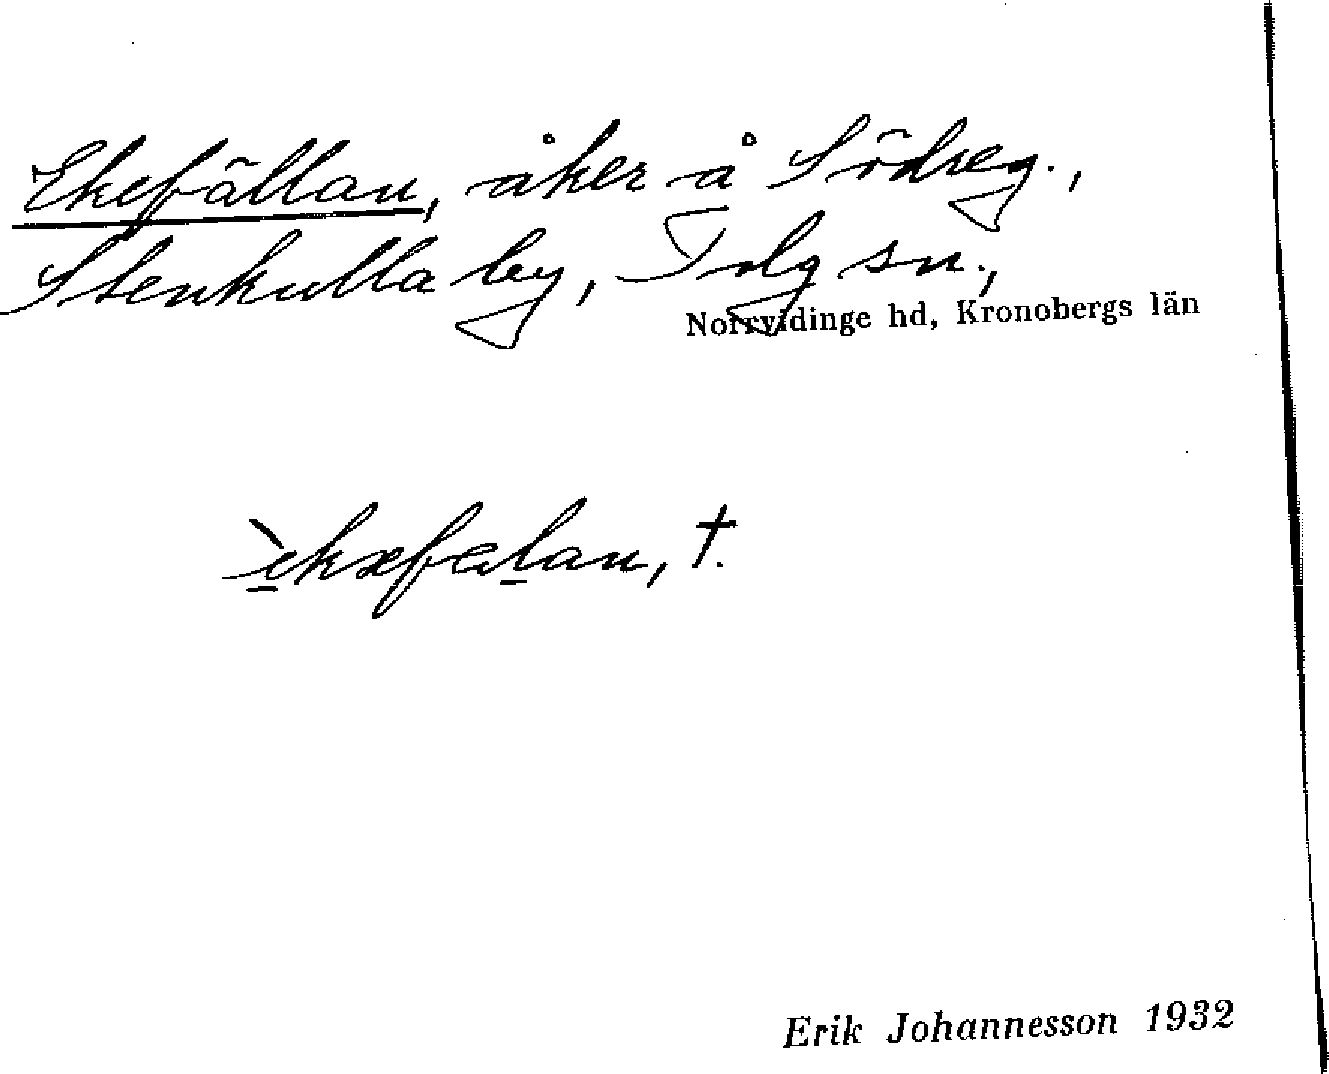 Ekefällan, åker å Södreg.,
Stenkulla by, Tolg sn.,
Norrvidinge hd, Kronobergs län
èkæfælan, †.
Erik Johannesson 1932